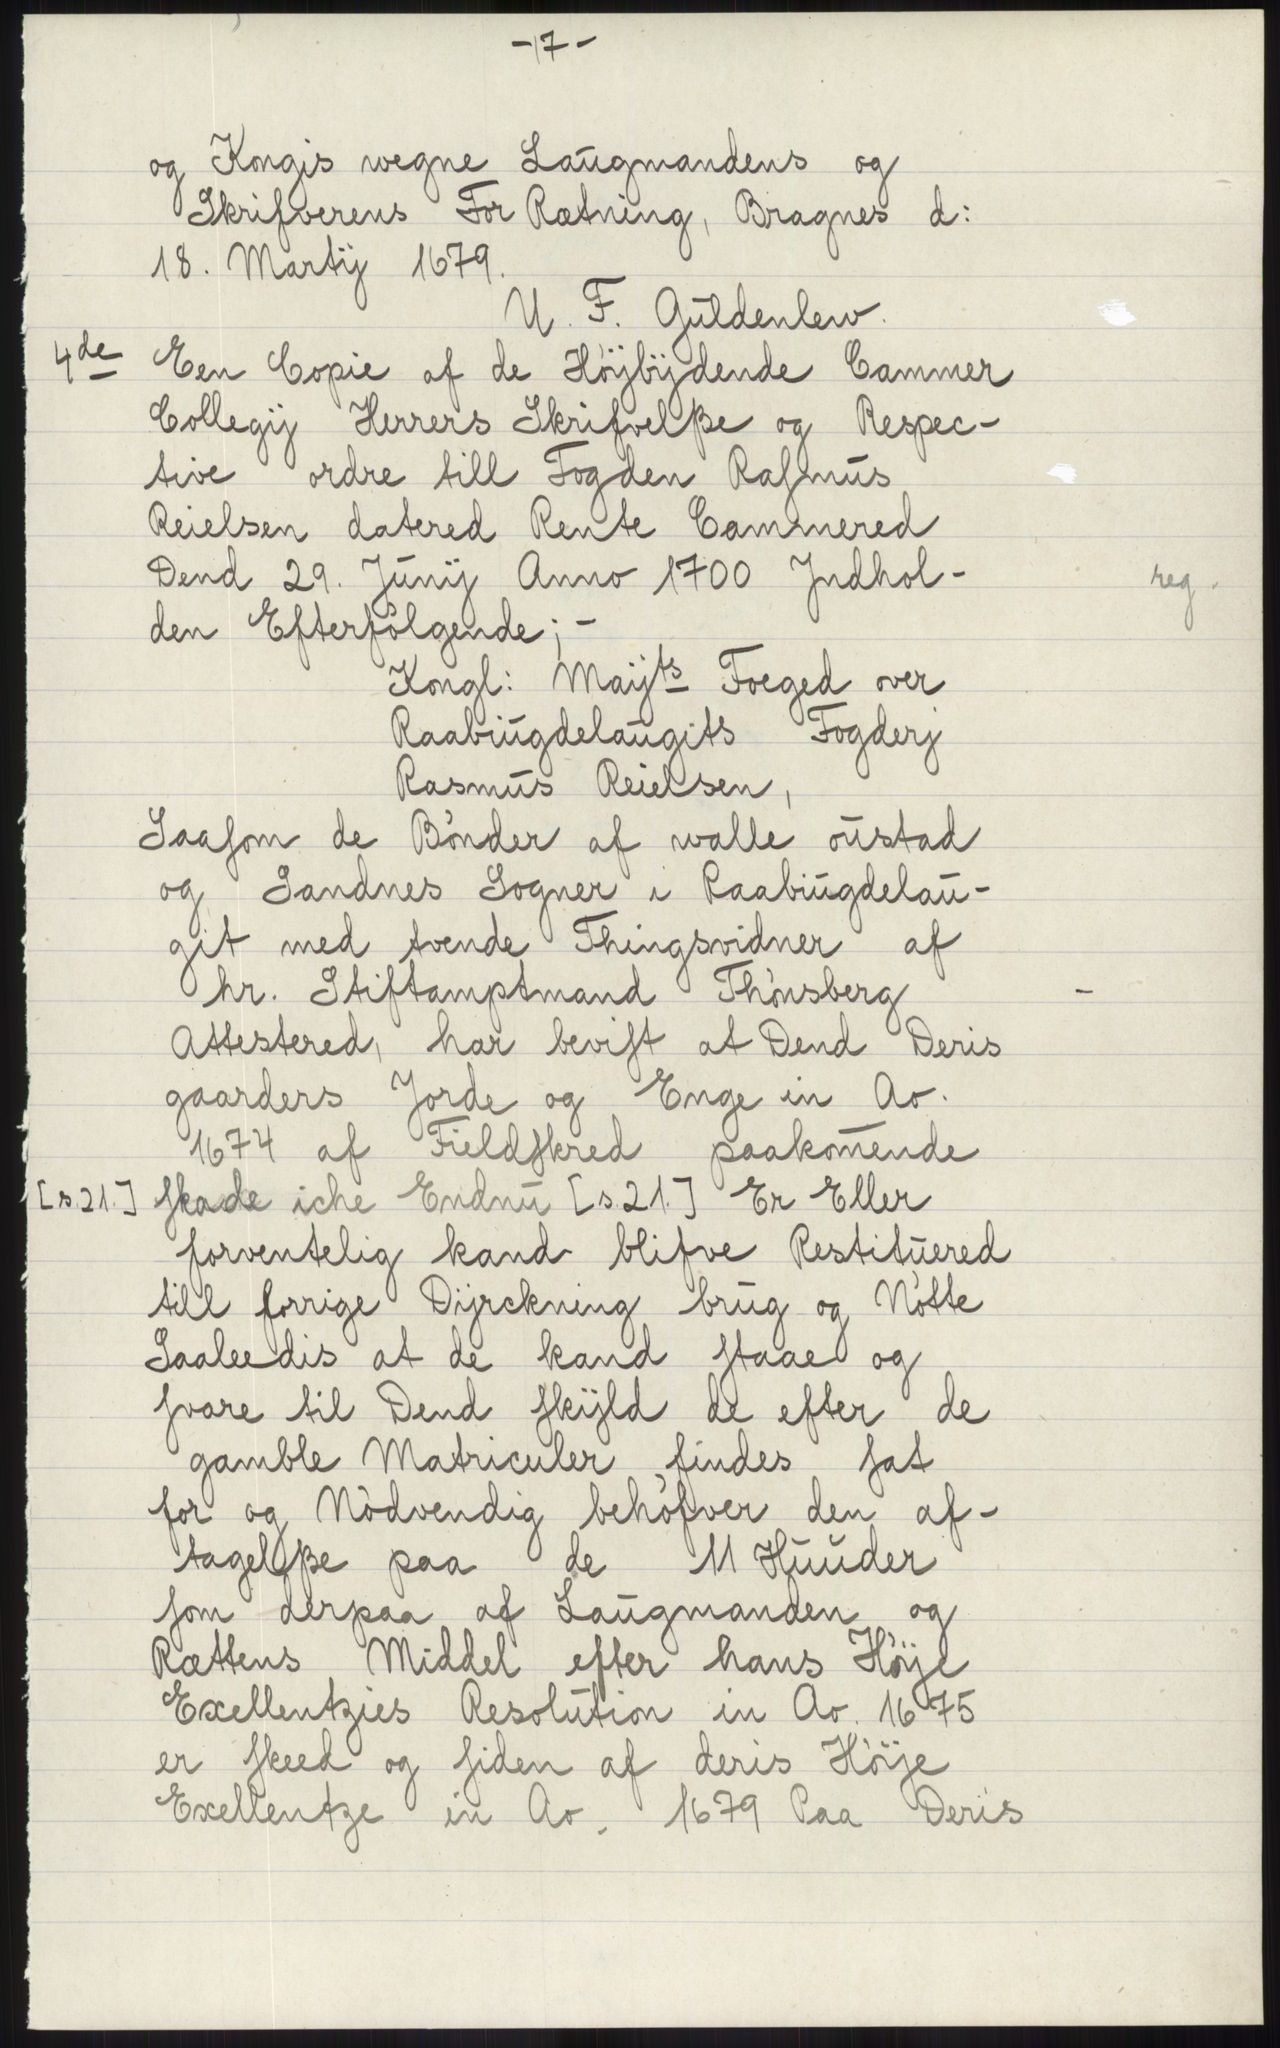 -17-
og Kongis wegne Laugmandens og
Skrifverens For Rætning, Bragnes d:
18. Martij 1679.
U. F. Guldenlew.
4de Een Copie af de Høÿbÿdende Cammer
Collegij Herrers Skrifvelße og Respec-
tive ordre till Fogden Raſmus
Reielsen datered Rente Cammered
Dend 29. Junij Anno 1700 Jndhol-
den Efterfølgende; -
reg.
Kongl: Maÿts Foeged over
Raabiugdelaugits Fogderj
Rasmus Reielsen,
Saaſom de Bønder af walle oustad
og Sandnes Sogner i Raabiugdelau-
git med tvende Thingsvidner af
hr. Stiftamptmand Thønsberg -
Attestered, har beviſt at Dend Deris
gaarders Jorde og Enge in Ao.
1674 af Fieldſkred paakom̄ende
[s.21.] ſkade iche Endnu [s.21.] Er Eller
forventelig kand blifve Restituered
till forrige Dijrckning brug og Nøtte
Saaleedis at de kand ſtaae og
ſvare til Dend ſkÿld de efter de
gamble Matriculer findes ſat
for og Nødvendig behøfver den af-
tagelße paa de 11 Huuder
ſom derpaa af Laugmanden og
Rættens Middel efter hans Høÿe
Exellentzies Resolution in Ao. 1675
er ſkeed og ſiden af deris Høÿe
Exellentze in Ao. 1679 Paa Deris